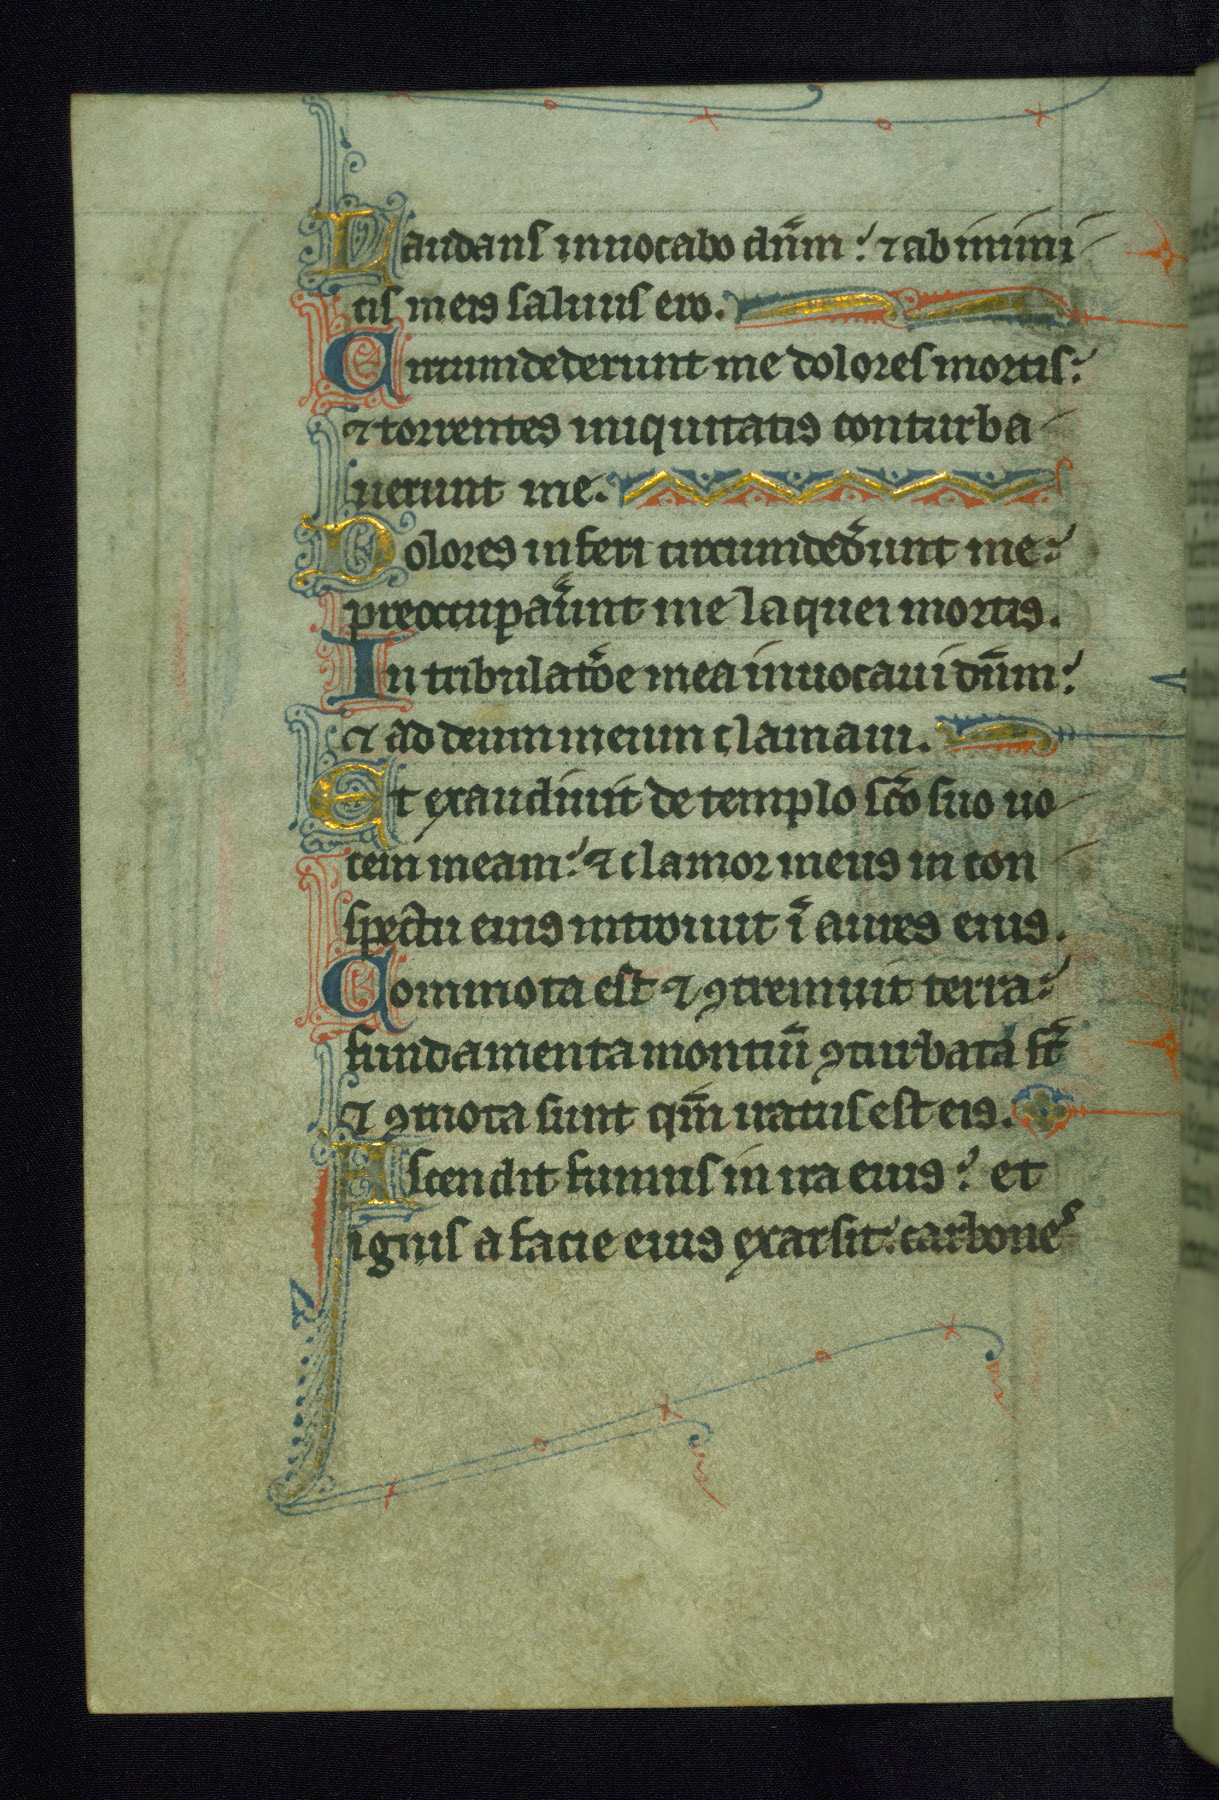 Laudans inuocabo dn̄m: ⁊ ab inimi
cis meis saluus ero.
Circumdederunt me dolores mortis:
⁊ torrentes iniquitatis conturba
uerunt me.
Dolores inferi circumded̾unt me:
preoccupau̾unt me laquei mortis.
In tribulatōe mea inuocaui dn̄m:
⁊ ad deum meum clamaui.
Et exaudiuit de templo sc̄o suo uo
cem meam: ⁊ clamor meus in con
spectu eius introiuit ī aures eius.
Commota est ⁊ ꝯtremuit terra:
fundamenta montiū ꝯturbata st̄
⁊ ꝯmota sunt qm̄ iratus est eis.
Ascendit fumus in ira eius: et
ignis a facie eius exarsit: carbones